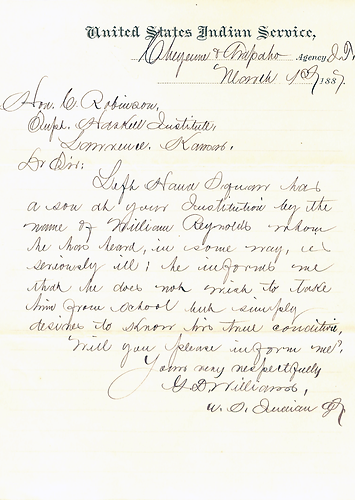 United States Indian Service,
Cheyenne & Arapaho Agency, I.T.
March 1st, 1887.
Hon. C. Robinson,
Supt. Haskell Institute,
Lawrence, Kansas.
Dr Sir:
Left Hand Squaw has
a son at your Institution by the
name of William Reynolds whom
he has heard, in some way, is
seriously ill; he informs me
that he does not wish to take
him from school but simply
desires to know his true condition,
Will you please inform me?
Yours very respectfully
G. D. Williams,
U. S. Indian Agt